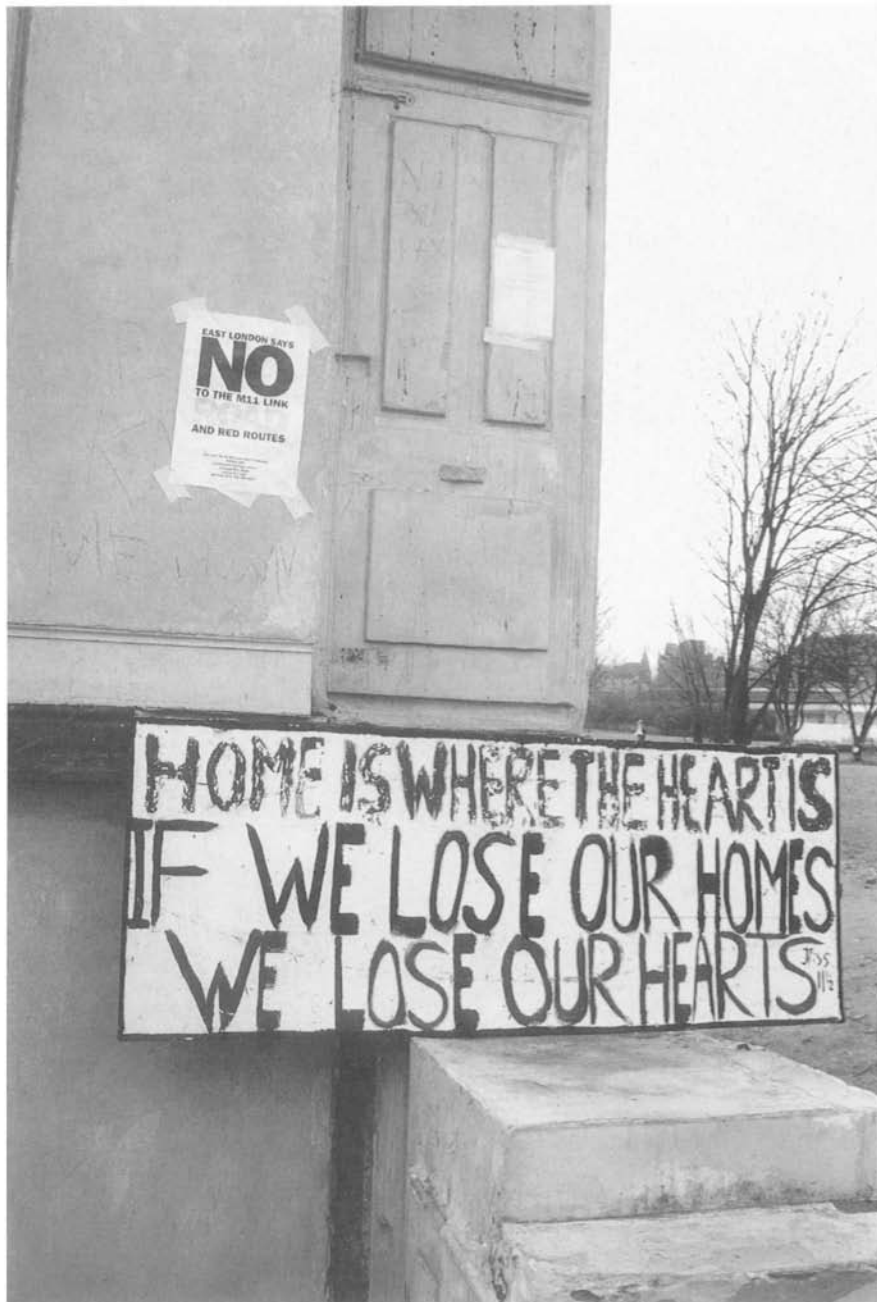 EAST LONDON SAYS
NO
TO THE M11 LINK
AND RED ROUTES
HOME IS WHERE THE HEART IS
IF WE LOSE OUR HOMES
WE LOSE OUR HEARTS
JESS
11½